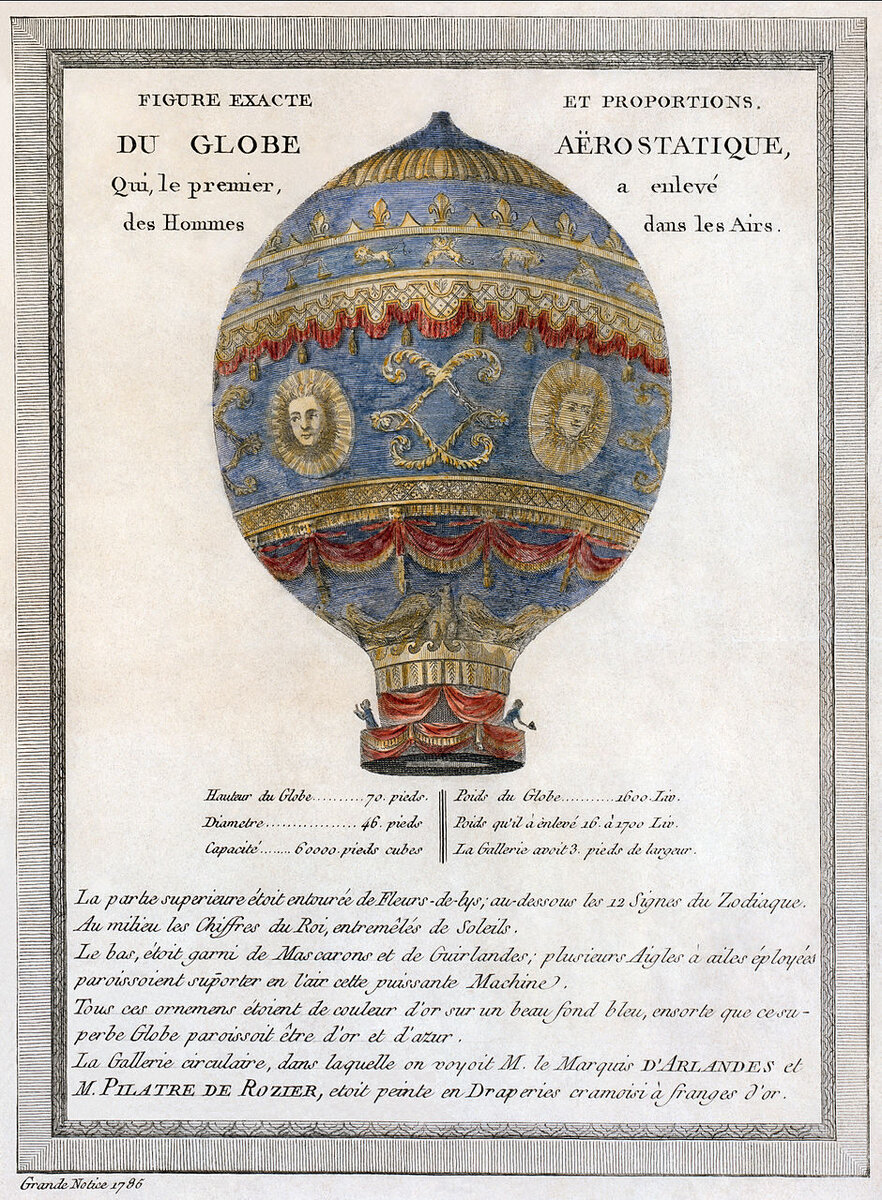 FIGURE EXACTE ET PROPORTIONS.
DU GLOBE AËROSTATIQUE,
Qui, le premier, a enlevé
des Hommes dans les Airs.
Hauteur du Globe..........70. pieds.
Diametre..................46. pieds
Capacité.......60000. pieds cubes
Poids du Globe..........1600. Liv.
Poids qu'il à enlevé 16. à 1700 Liv.
La Gallerie avoit 3. pieds de largeur.
La partie superieure étoit entourée de Fleurs-de-lys; au-dessous les 12 Signes du Zodiaque.
Au milieu les Chiffres du Roi, entremêlés de Soleils.
Le bas, étoit garni de Mascarons et de Guirlandes; plusieurs Aigles à ailes éployées
paroissoient suporter en l'air cette puissante Machine.
Tous ces ornemens étoient de couleur d'or sur un beau fond bleu, ensorte que ce su-
perbe Globe paroissoit être d'or et d'azur.
La Gallerie circulaire, dans laquelle on voyoit M. le Marquis D'ARLANDES et
M. PILATRE DE ROZIER, etoit peinte en Draperies cramoisi à franges d'or.
Grande Notice 1786